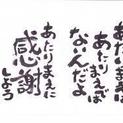 あたりまえは
あたりまえじゃ
ないんだよ
あたりまえに
感謝
しよう